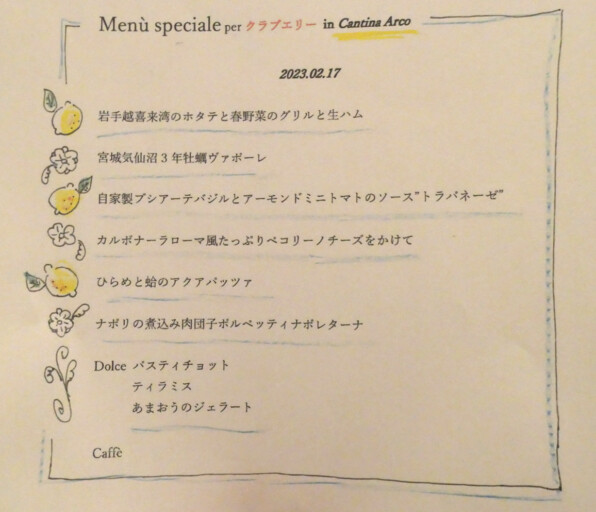 Menù speciale per クラブエリー in Cantina Arco
2023.02.17
岩手越喜来湾のホタテと春野菜のグリルと生ハム
宮城気仙沼3年牡蠣ヴァポーレ
自家製ブシアーテバジルとアーモンドミニトマトのソース"トラパネーゼ"
カルボナーラローマ風たっぷりペコリーノチーズをかけて
ひらめと蛤のアクアパッツァ
ナポリの煮込み肉団子ポルペッティナポレターナ
Dolce パスティチョット
ティラミス
あまおうのジェラート
Caffè